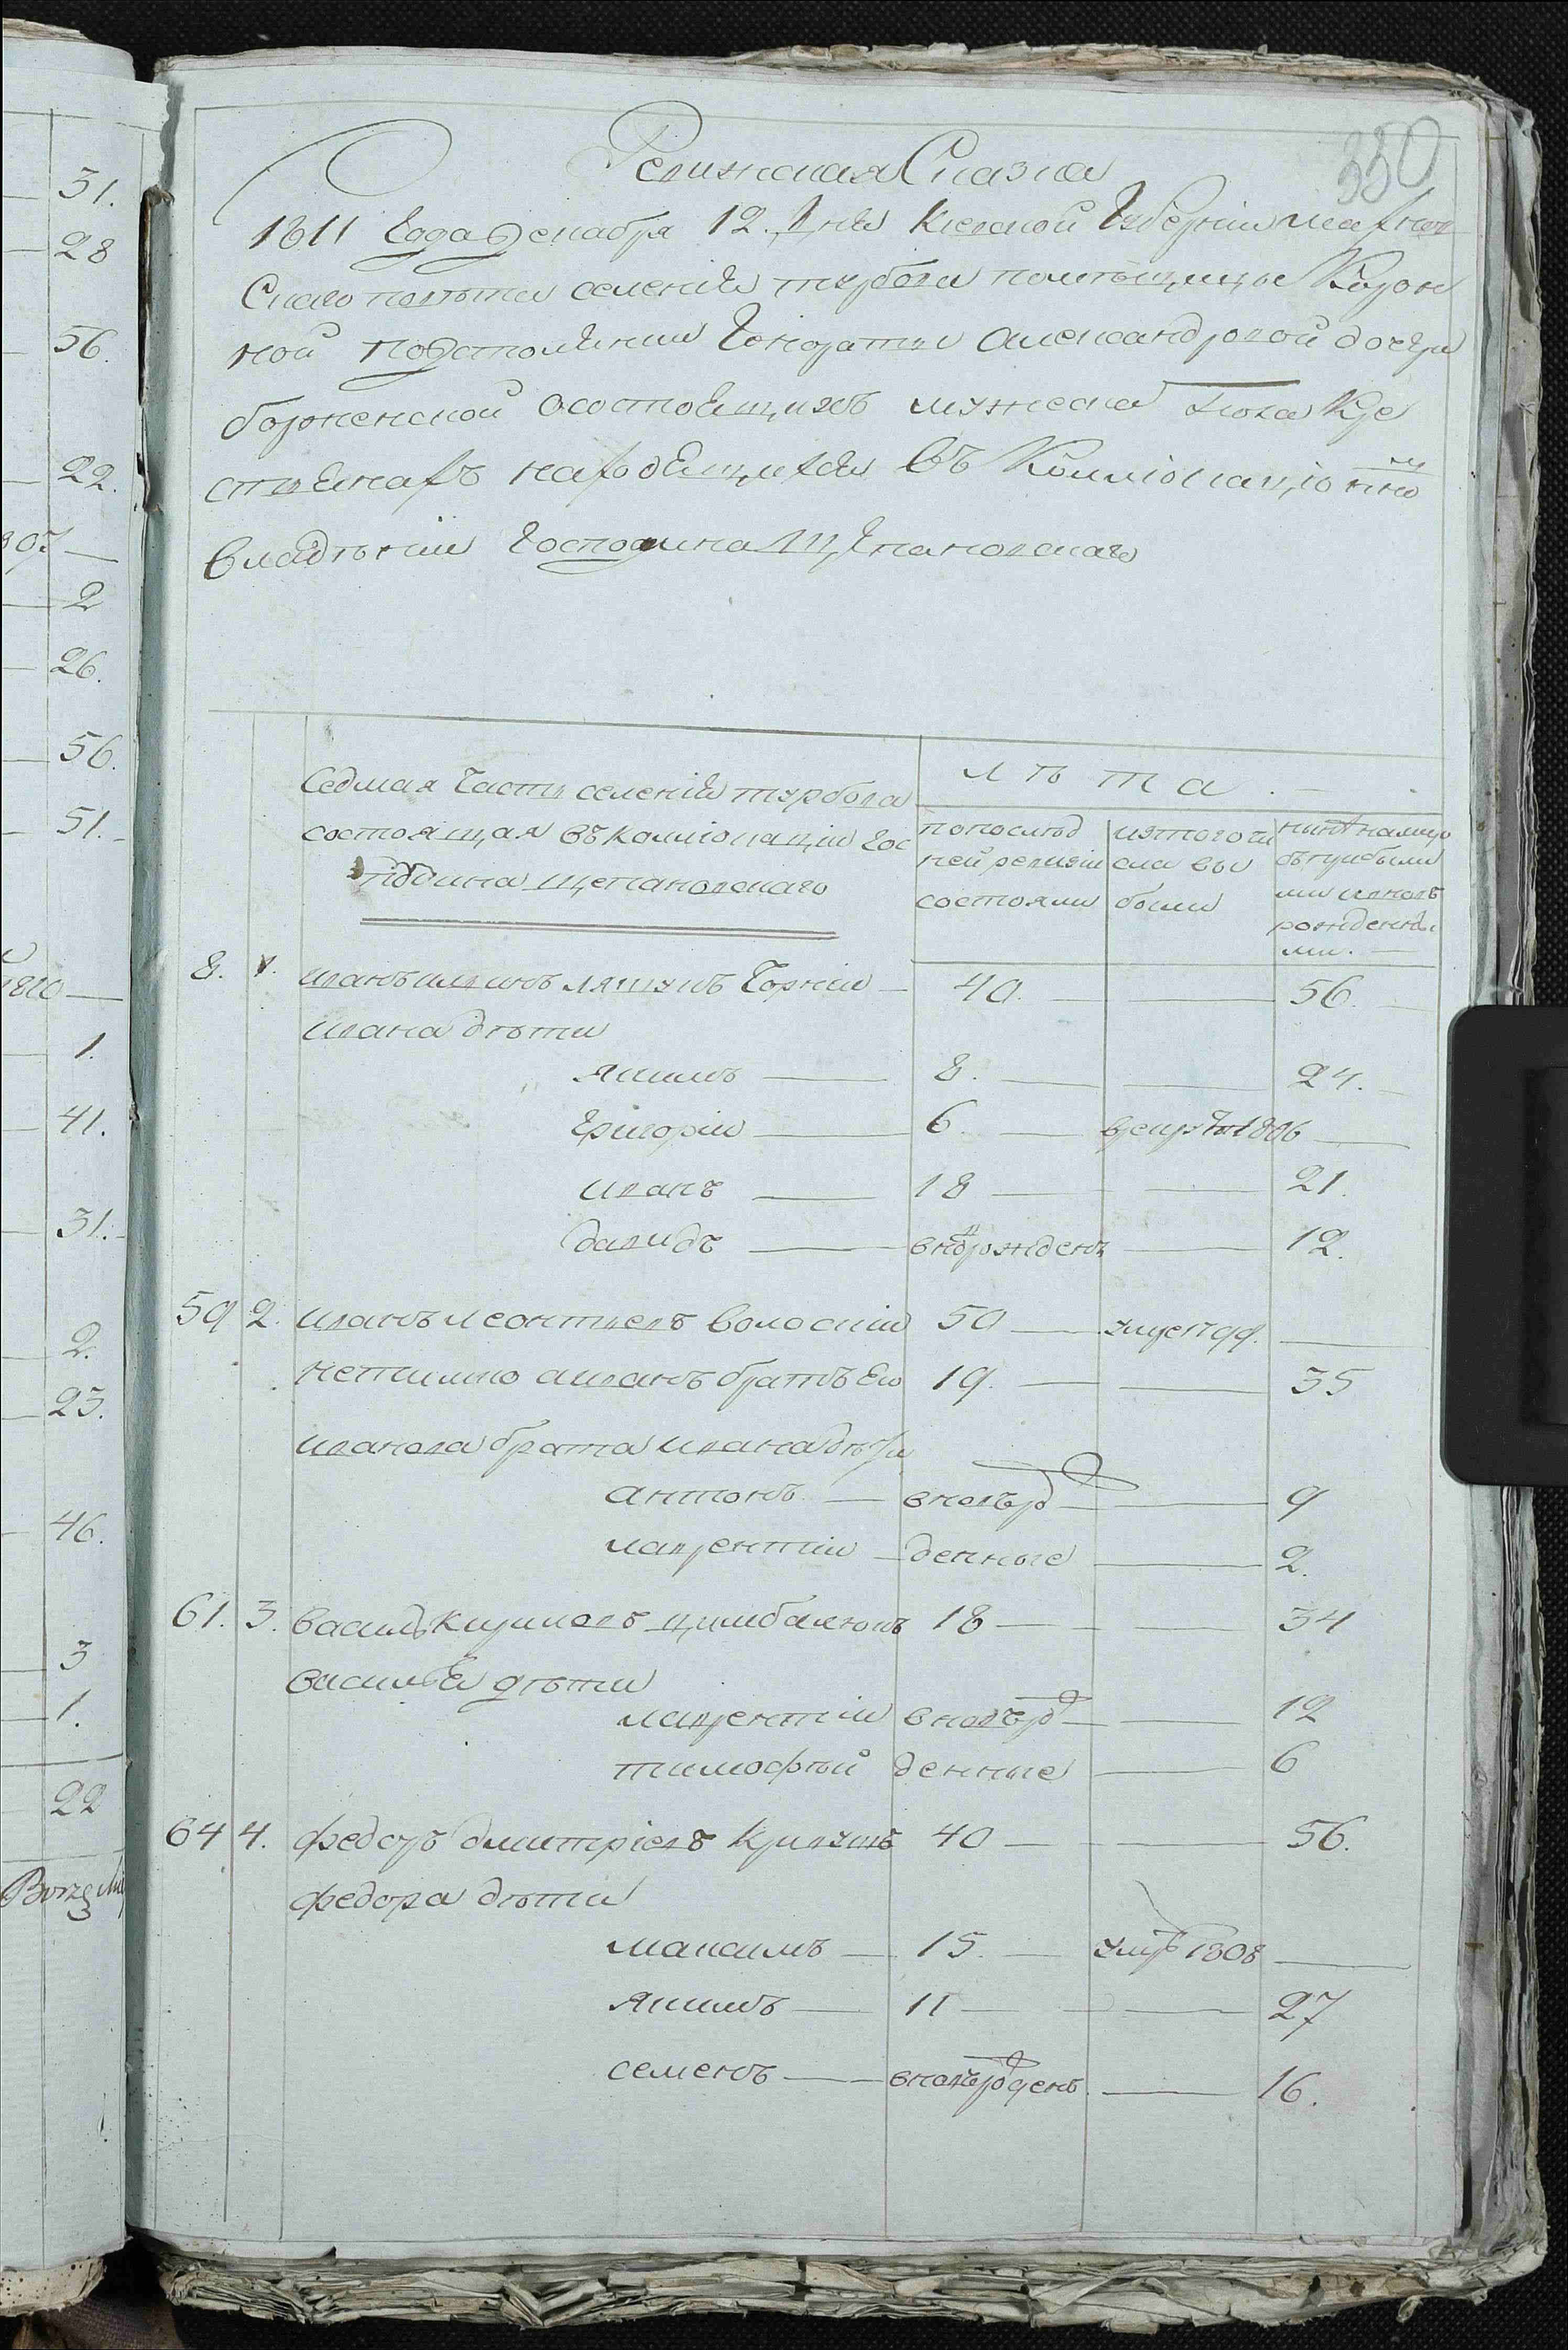 350
Ревижская Сказка
1811 Года Декабря 12. Дня Киевской Губернiи махнов
Скаго повѣта селенiя турбова помѣщицы Корон
ной подстолѣнки Гоноратты Александровой дочери
борженской осостоящихъ мужеска пола Кре
стьянахъ находящихся Въ Коллiокацiонно
владѣнiи Господина Щепановскаго
Седмая Часть селенiя турбова
состоящая въ коллiокацiи Гос
подина щепановскаго
лѣта
попослѣд
ней ревизiи
состояли
изтого чи
сла вы
были
нынѣ налицо
съ прибыли
ми и вновь
рожденны
ми.
8. 1. иванъ ильинъ ляшукъ Чорнiи 40. 56.
ивана дѣти
якимъ 8. 24.
Григорiи 6. врекруты 1806
иванъ 18 21.
давидъ вновърожденъ 12.
59 2. иванъ леонтьевъ волоскiи 50 умре 1799.
нетимко а иванъ братъ Его 19. 35
иванова брата ивана дѣти
антонъ вновърож 9
лаврентiи денные 2.
61. 3. василь кириловъ цимбалюкъ 18 34
василья дѣти
лаврентiи вновърож 12
тимофѣй денные 6
64 4. федоръ дмитрiевъ кривушъ 40 56.
федора дѣти
максимъ 15. умре 1808
якимъ 11 27
семенъ вновърожденъ 16.
31.
28
56.
22.
807
2
26.
56.
51.
1810
1.
41.
31.
2.
23.
46.
3
1.
22